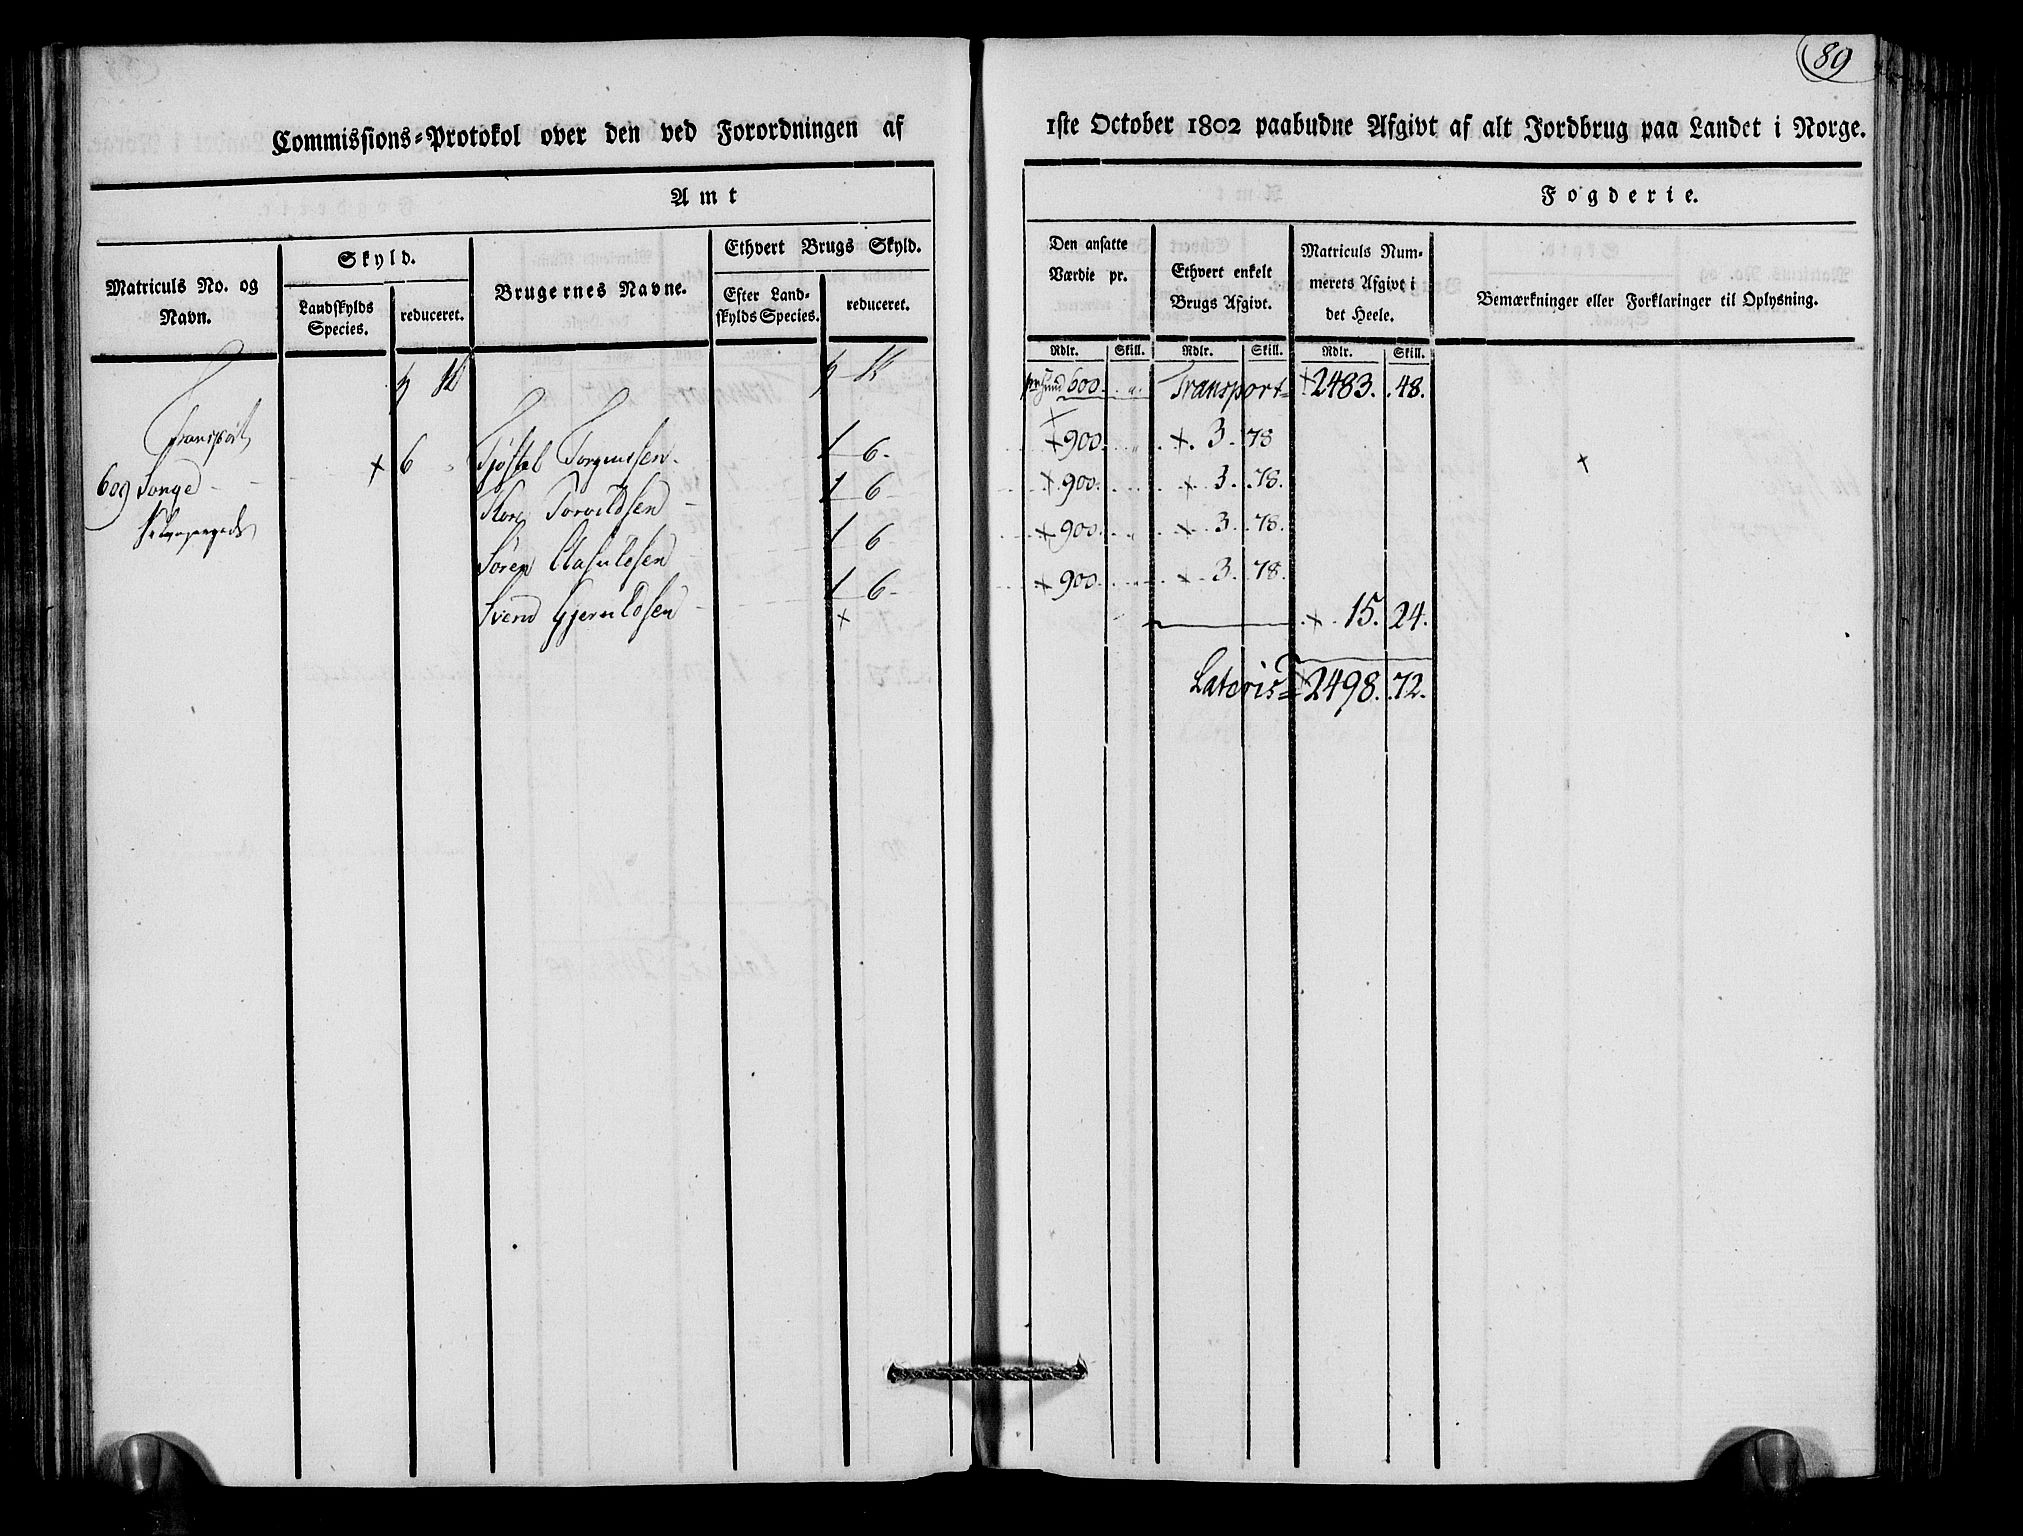 89
Commissions-Protokol over den ved Forordningen af 1ste October 1802 paabudne Afgivt af alt Jordbrug paa Landet i Norge.
Amt
Fogderie.
Matriculs No. og Navn.
Skyld.
Landskylds Species.
reduceret.
Brugernes Navne.
Ethvert Brugs Skyld.
Efter Landskylds Species.
reduceret.
Den ansatte Værdie pr.
Ethvert enkelt Brugs Afgivt.
Matriculs Nummerets Afgivt i det Heele.
Bemærkninger eller Forklaringer til Oplysning.
Rdlr. Skill. Rdlr. Skill. Rdlr. Skill.
Transport
pr hund 600. Transport 2483. 48.
609 Songe
+ 6
Torgiussen 1 6
+ 900 + 3. 78
Tore Torvildsen 1 6
+ 900 + 3. 78.
Søren 1 6
+ 900 + 3. 78.
Svend 1 6
+ 900 + 3. 78.
+ 15. 24.
Lateris 2498. 72.